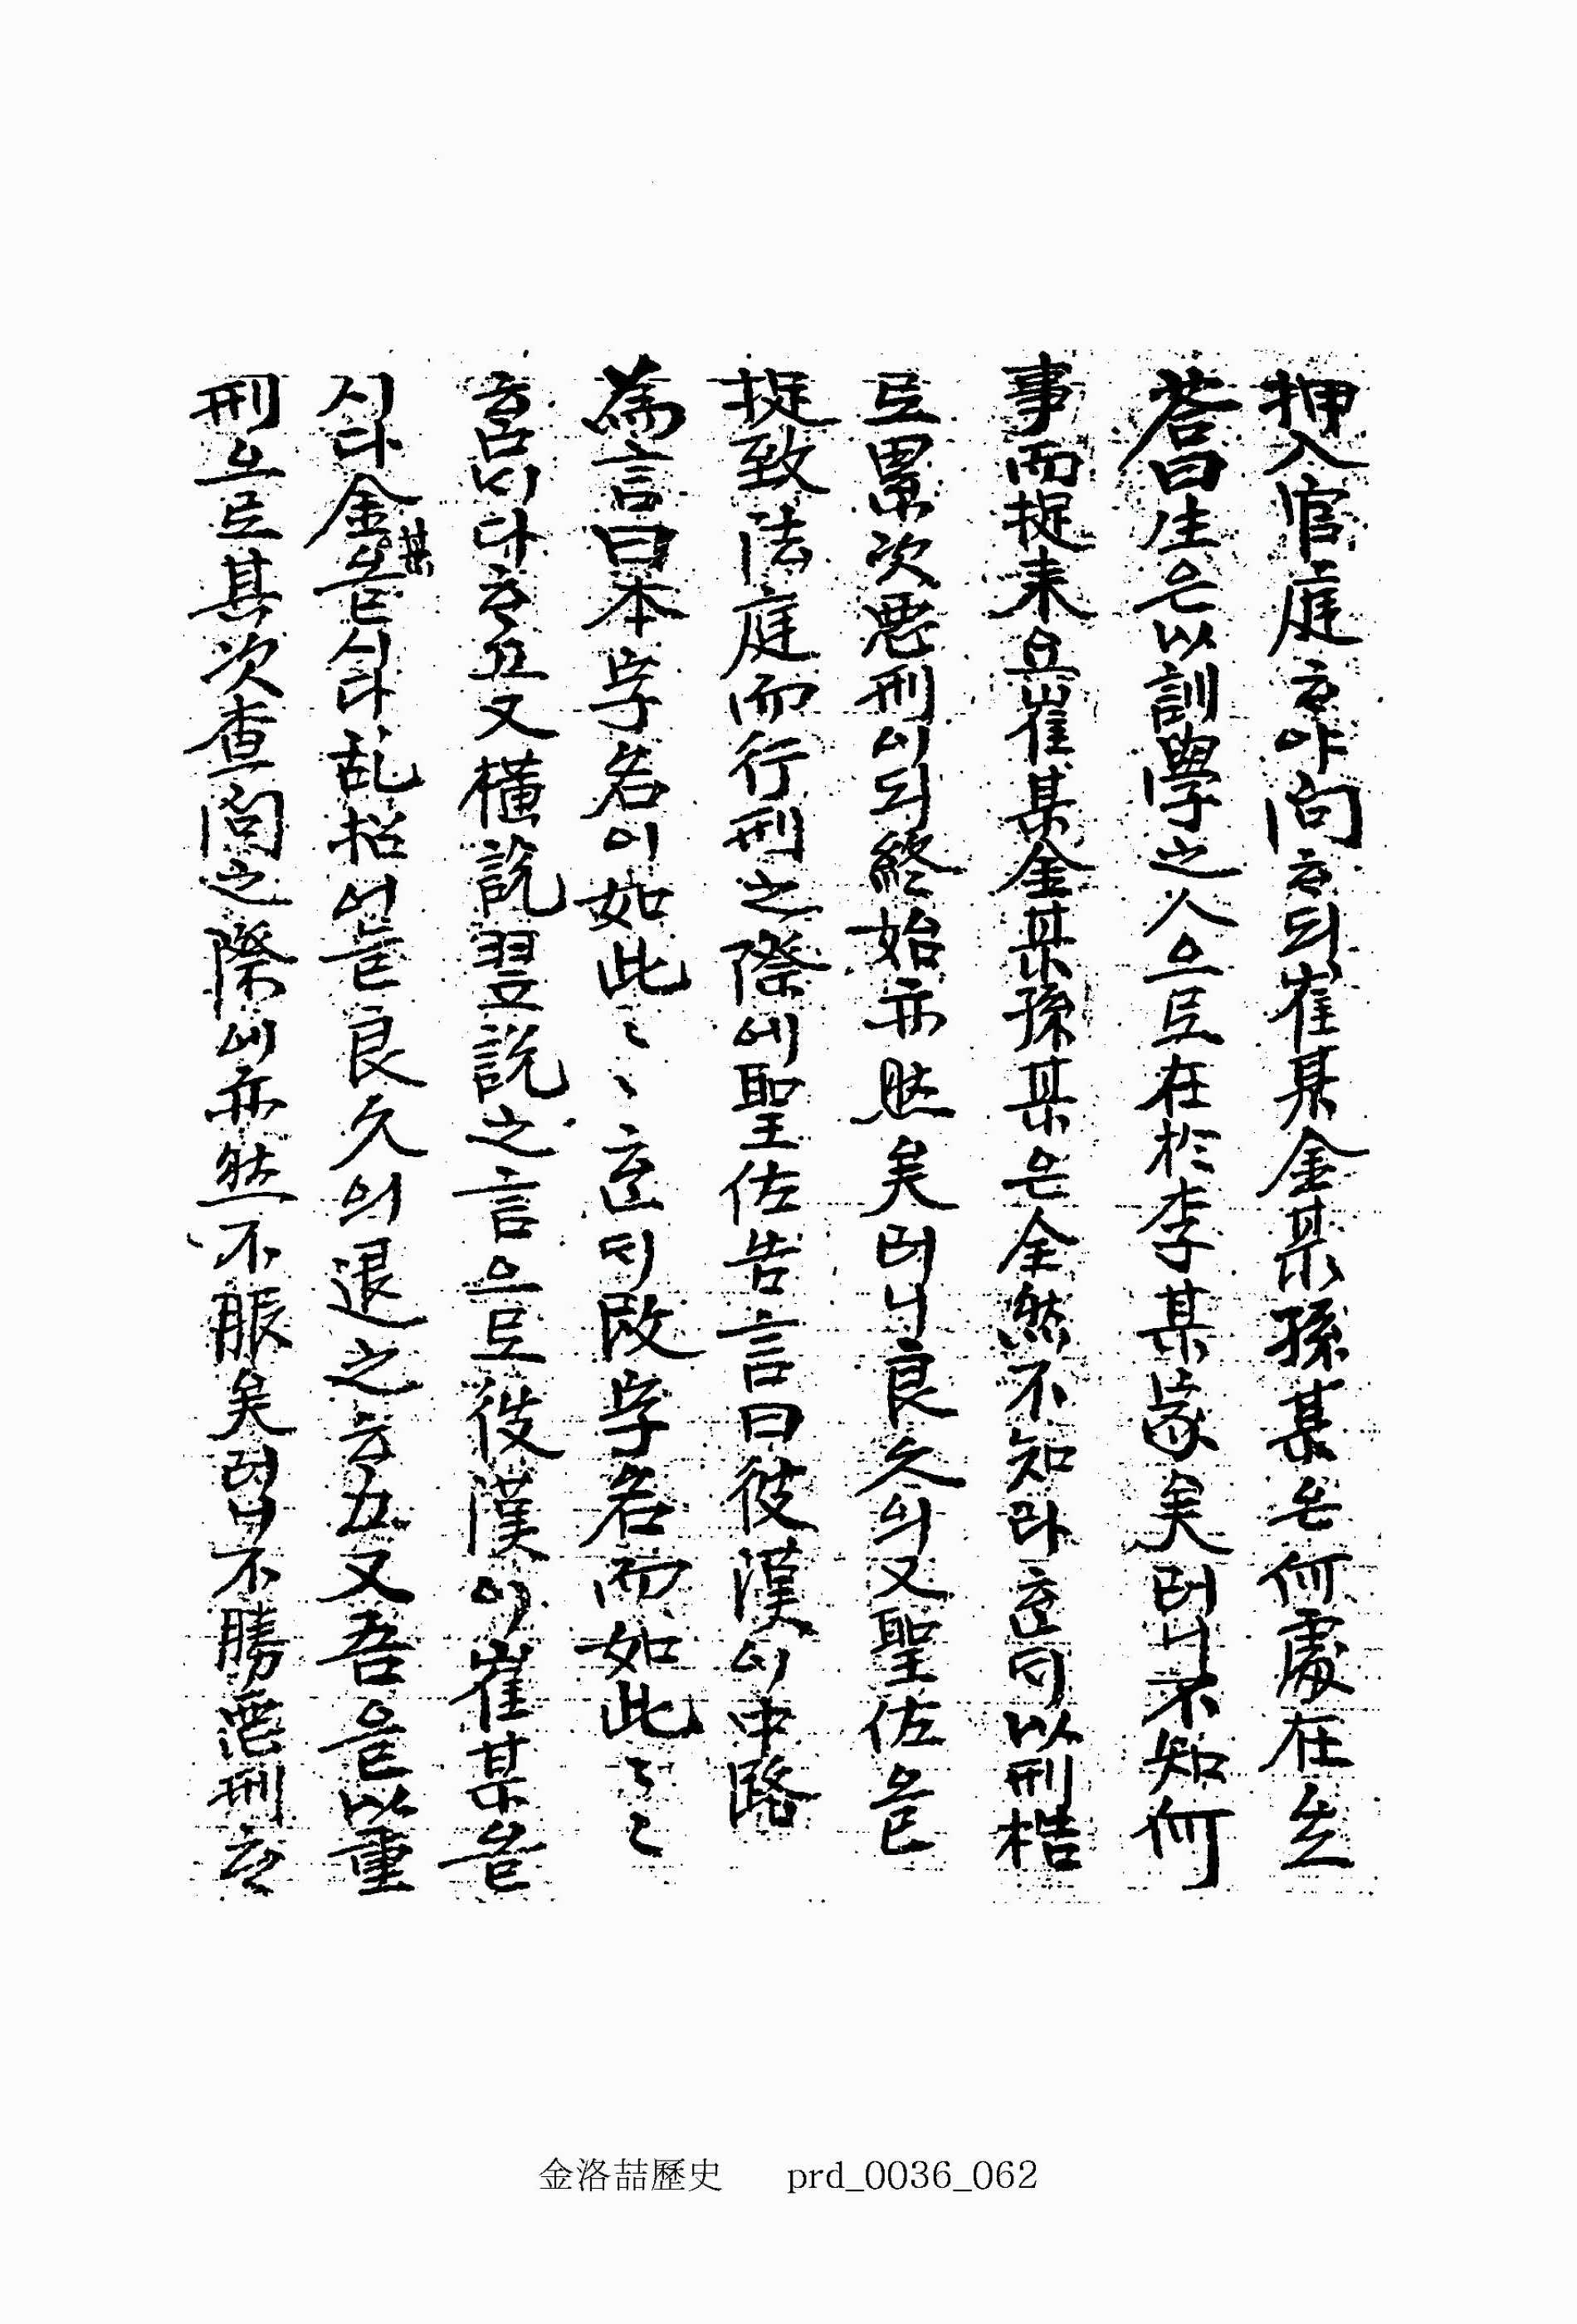 押入官庭ᄒᆞ야問ᄒᆞ되崔某金某孫某는何處在生
答曰生은以訓學之人으로在於李某家矣러니不知何
事而捉來요崔某金某孫某은全然不知라ᄒᆞᆫᄃᆡ以刑梏
로累次惡刑이되終始亦然矣러니良久의又聖佐을
捉致法庭而行刑之際에聖佐告言曰彼漢이中路
為言曰本字名이如此〻〻ᄒᆞᆫᄃᆡ改字名而如此〻〻
ᄒᆞᆸᄂᆡ다ᄒᆞ고又橫說竪說之言으로彼漢이崔某을
시다金某을시다乱招어늘良久의退之ᄒᆞ고又吾을以重
刑으로其次查問之際에亦然不服矣러니不勝惡刑ᄒᆞ
金洛喆歷史 prd_0036_062